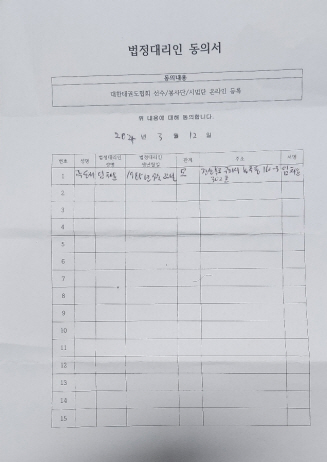 법정대리인 동의서
동의내용
대한태권도협회 선수/봉사단/시범단 온라인 등록
위 내용에 대해 동의합니다.
2024 년 3 월 12 일
번호 성명 법정대리인 성명 법정대리인 생년월일 관계 주소 서명
1 모
2
3
4
5
6
7
8
9
10
11
12
13
14
15